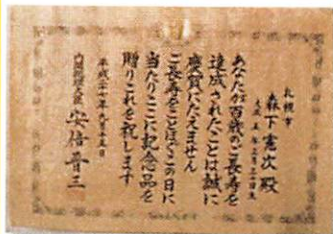 札幌市
森下憲次殿
あなたが百歳のご長寿を
達成されたことは誠に
慶賀にたえません
ご長寿をことほぐこの日に
当たりここに記念品を
贈りこれを祝します
平成二十七年九月十五日
内閣総理大臣 安倍晋三